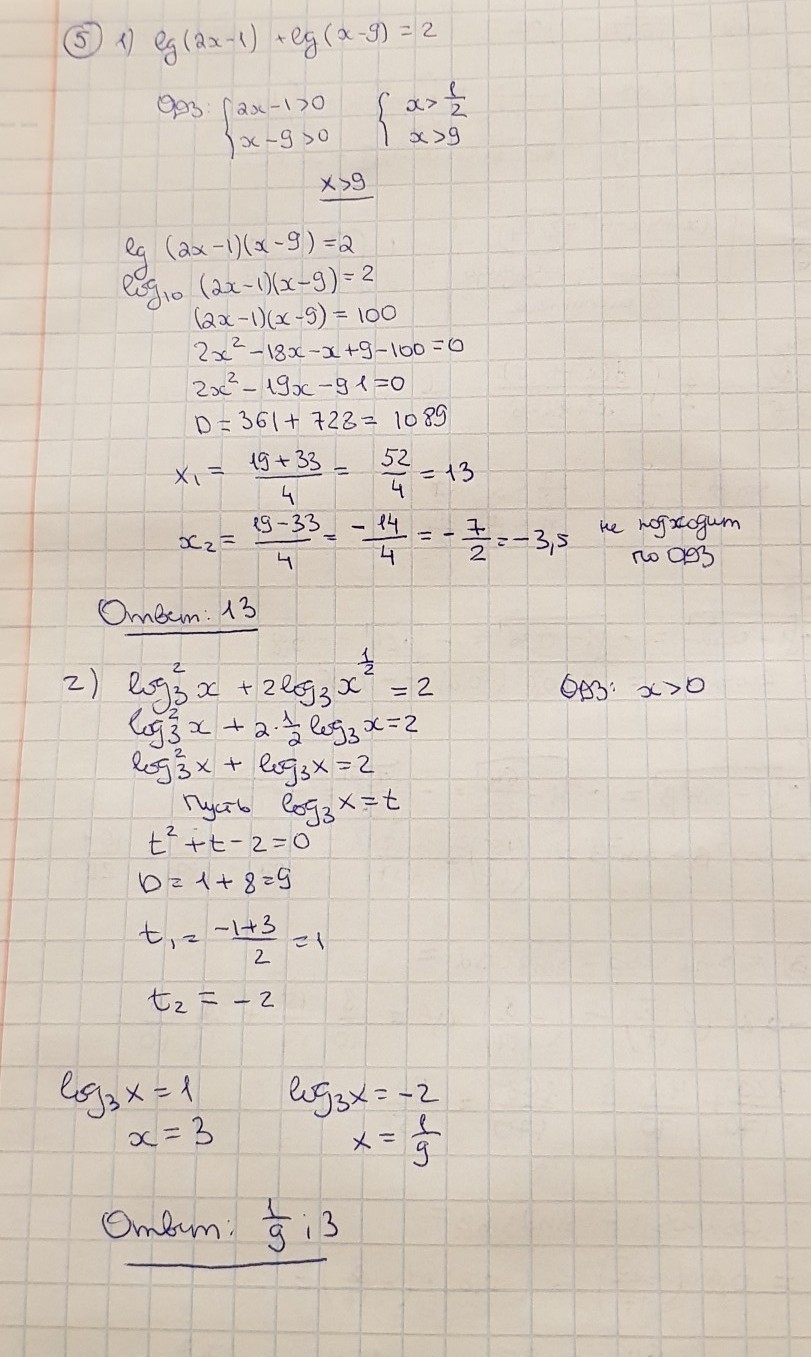 ⑤ 1) lg(2x-1) + lg(x-9) = 2
ОДЗ: { 2x-1>0 { x> 1/2
x-9>0 x>9
x>9
lg (2x-1)(x-9) = 2
log₁₀ (2x-1)(x-9) = 2
(2x-1)(x-9) = 100
2x² - 18x - x + 9 - 100 = 0
2x² - 19x - 91 = 0
D = 361 + 728 = 1089
x₁ = (19+33)/4 = 52/4 = 13
x₂ = (19-33)/4 = -14/4 = -7/2 = -3,5 не подходит
по ОДЗ
Ответ: 13
2) log₃² x + 2log₃ x^(1/2) = 2 ОДЗ: x>0
log₃² x + 2·1/2 log₃ x = 2
log₃² x + log₃ x = 2
Пусть log₃ x = t
t² + t - 2 = 0
D = 1 + 8 = 9
t₁ = (-1+3)/2 = 1
t₂ = -2
log₃ x = 1 log₃ x = -2
x = 3 x = 1/9
Ответ: 1/9 ; 3